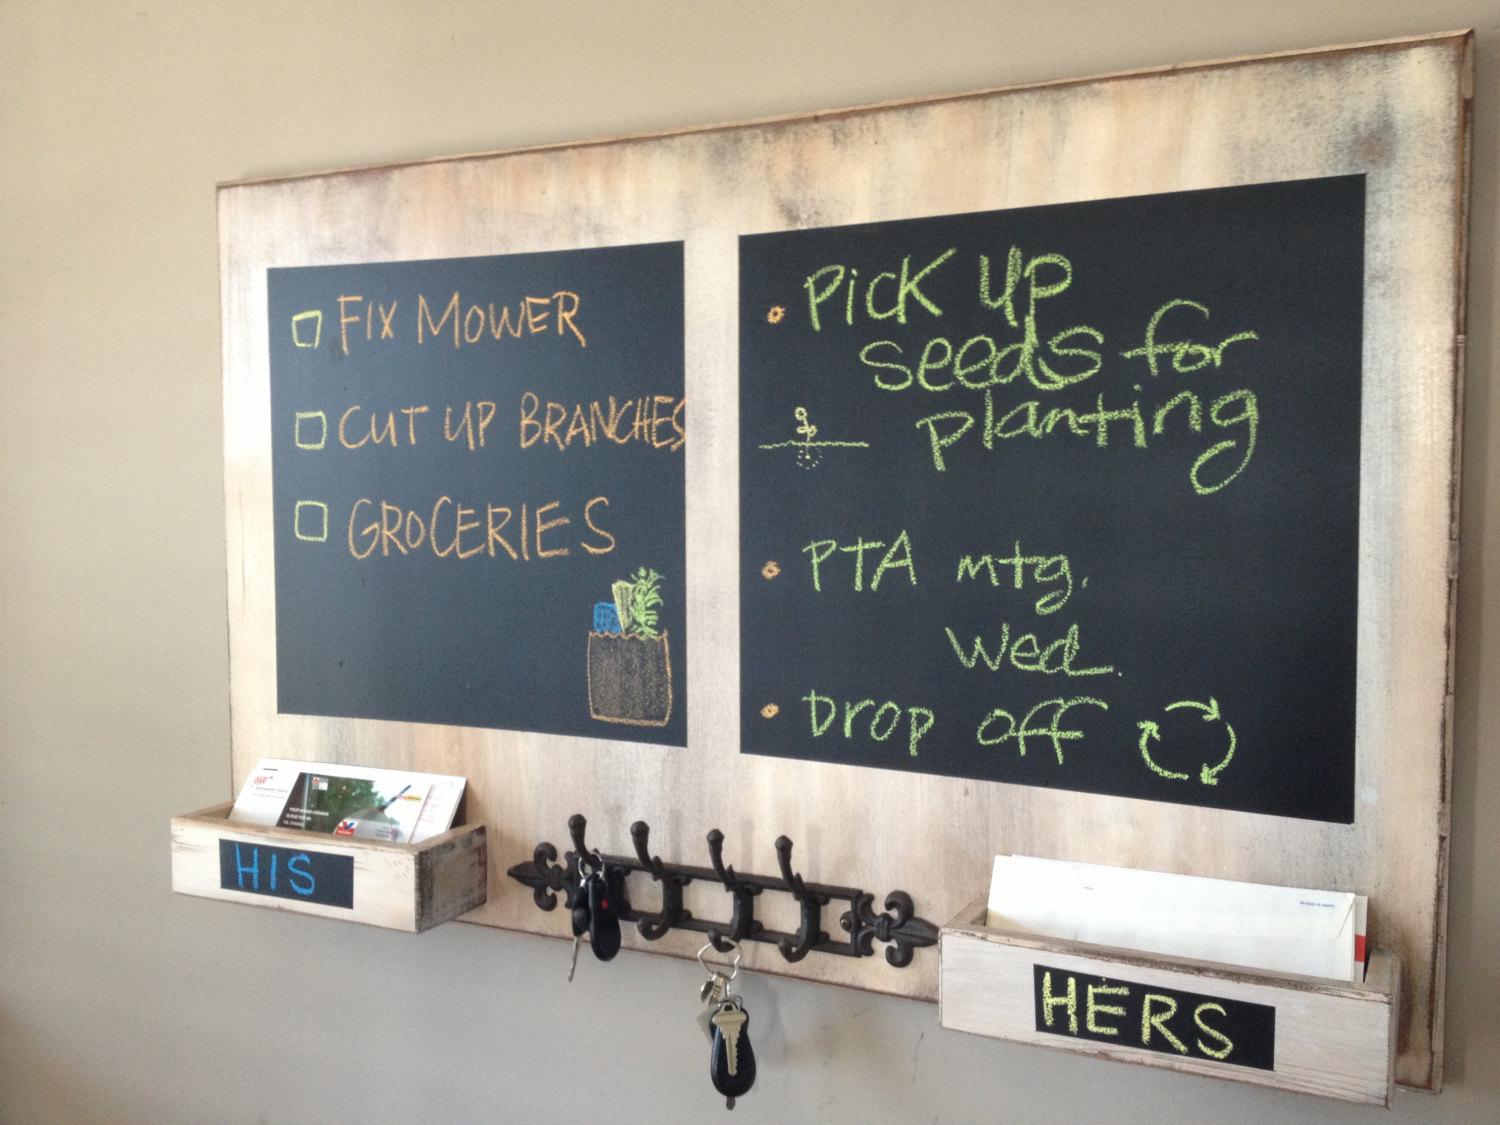 FIX MOWER
CUT UP BRANCHES
GROCERIES
Pick up
seeds for
planting
PTA mtg.
Wed.
Drop off
HIS
HERS